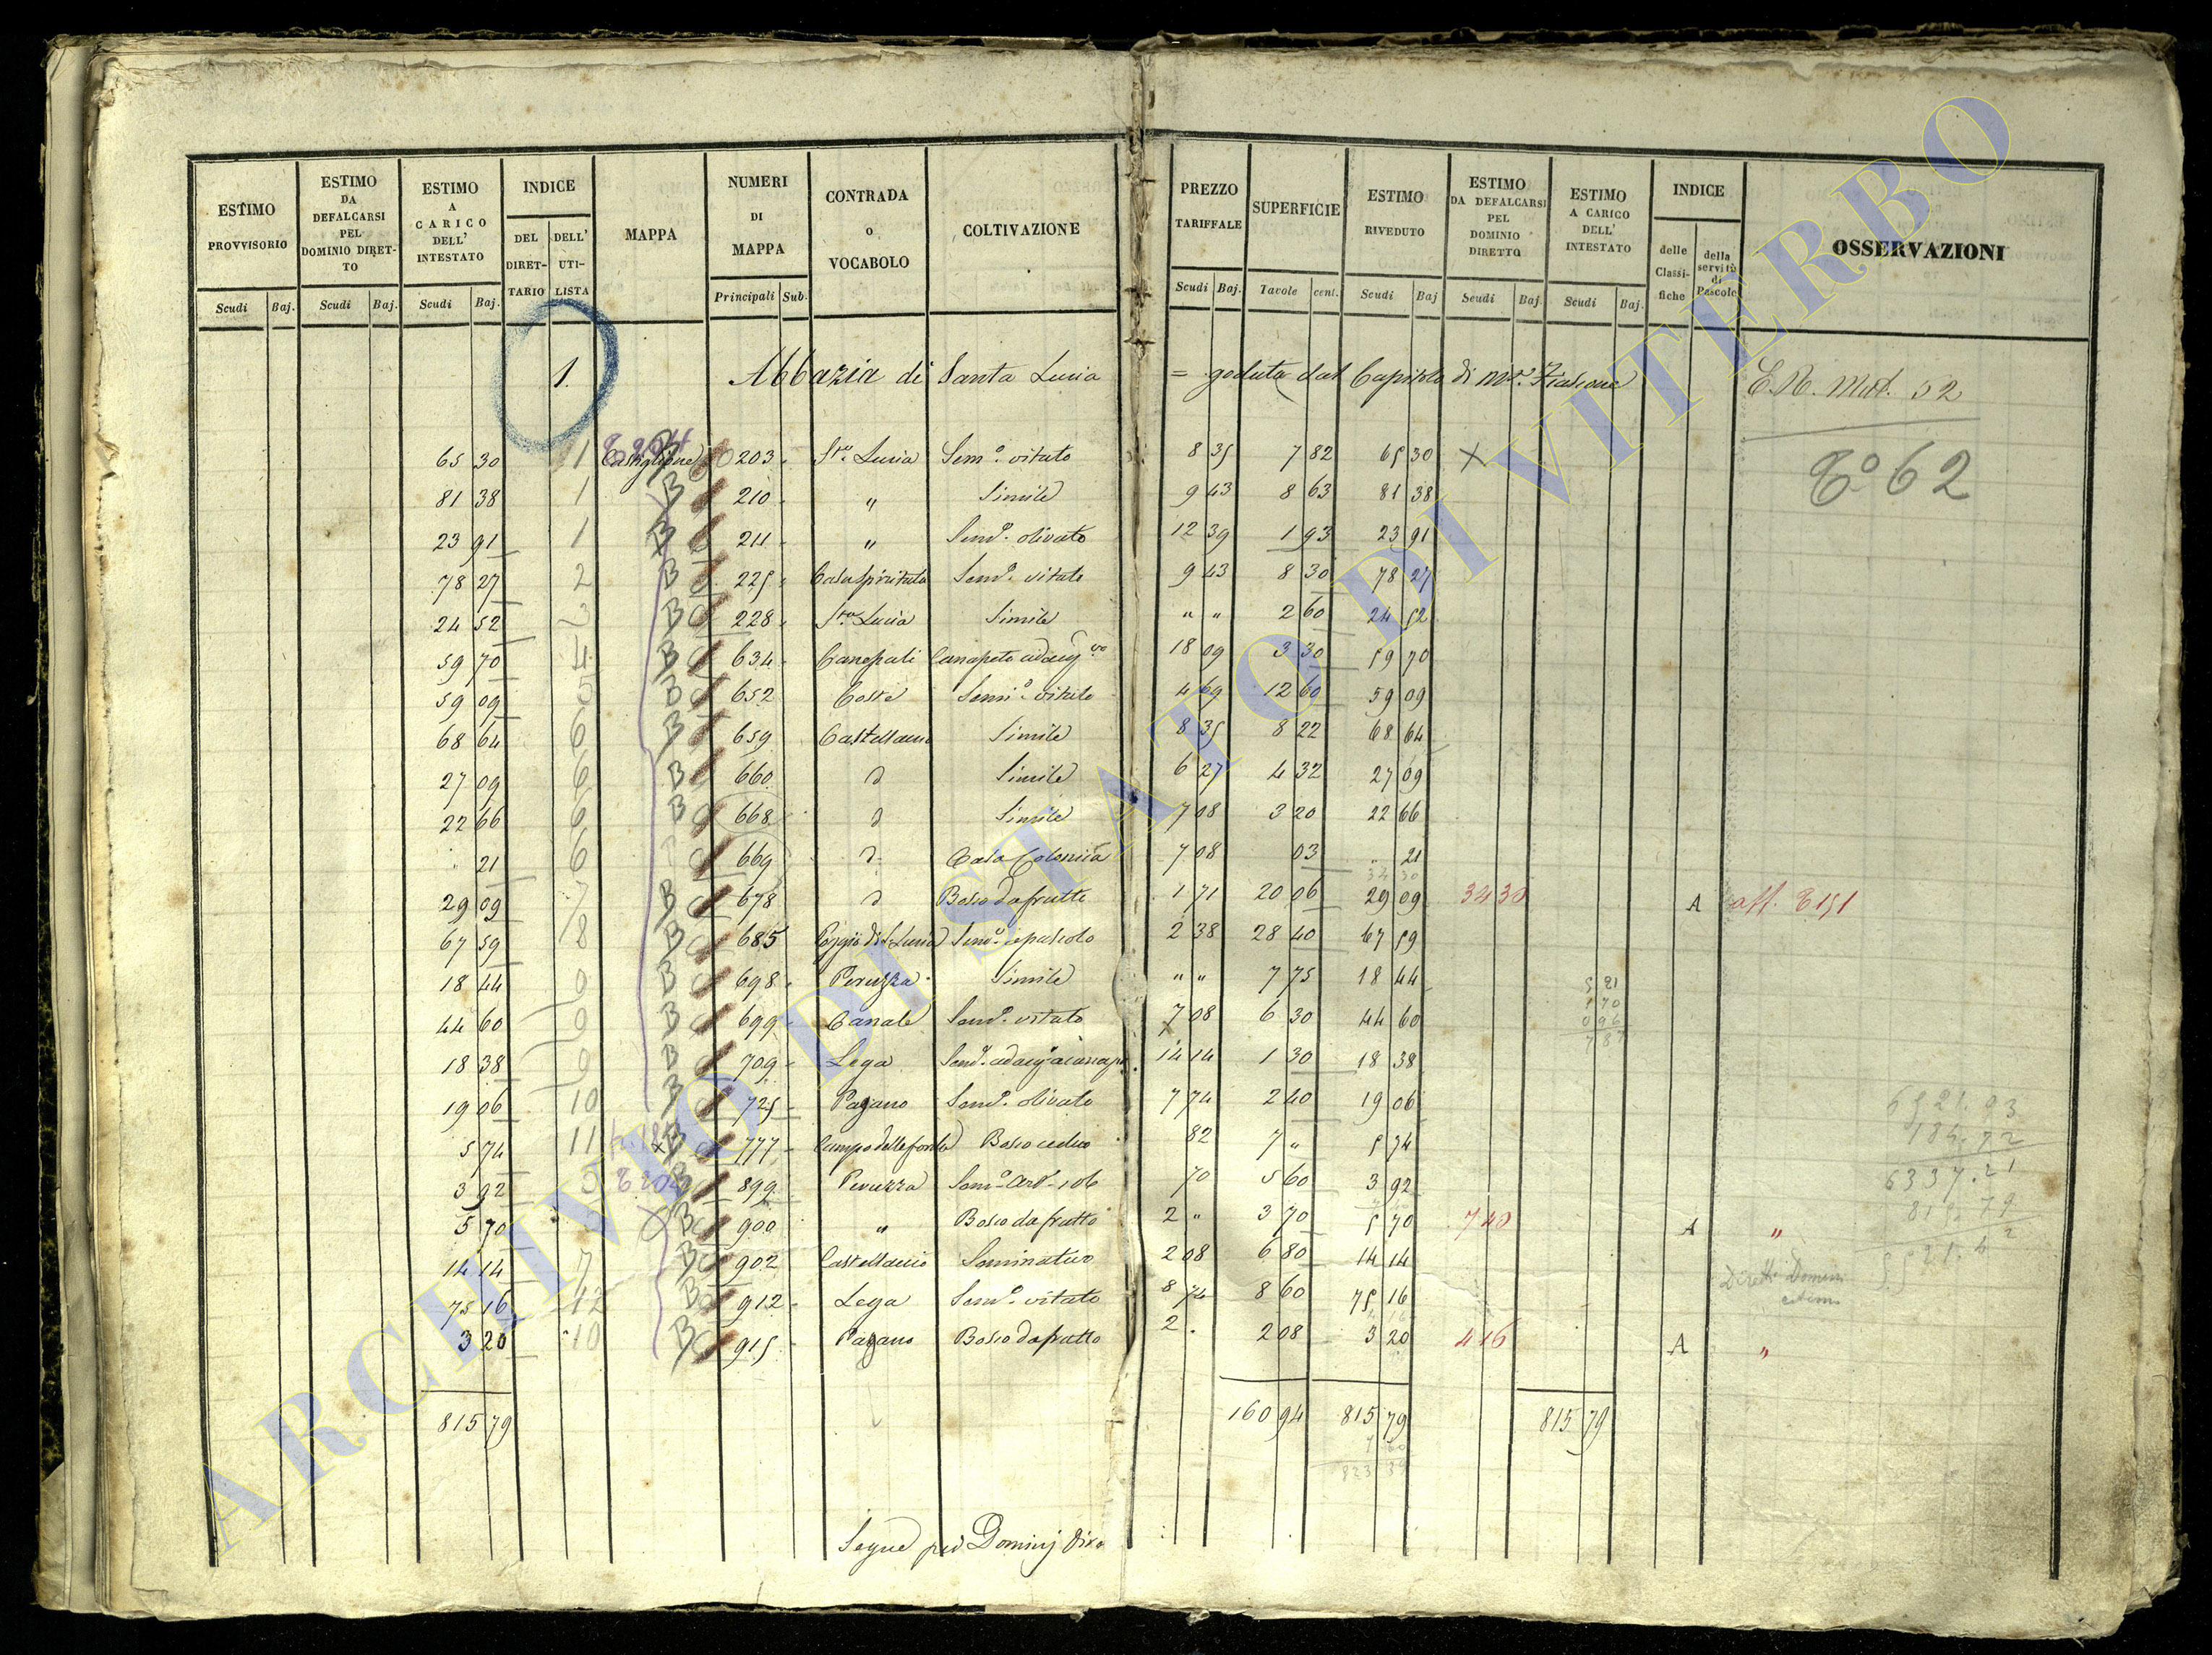 ESTIMO PROVVISORIO | ESTIMO DA DEFALCARSI PEL DOMINIO DIRETTO | ESTIMO A CARICO DELL' INTESTATO | INDICE | MAPPA | NUMERI DI MAPPA | CONTRADA O VOCABOLO | COLTIVAZIONE | PREZZO TARIFFALE | SUPERFICIE | ESTIMO RIVEDUTO | ESTIMO DA DEFALCARSI PEL DOMINIO DIRETTO | ESTIMO A CARICO DELL' INTESTATO | INDICE | OSSERVAZIONI
DEL DIRETTARIO | DELL' UTILISTA | delle Classifiche | della servitù di Pascolo
Scudi | Baj. | Scudi | Baj. | Scudi | Baj. | Principali | Sub. | Scudi | Baj. | Tavole | cent. | Scudi | Baj | Scudi | Baj. | Scudi | Baj.
1. Abbazia di Santa Lucia = goduta dal Capitolo di M.te Fiascone
65 30 1 Castiglione 203 S.ta Lucia Sem.o vitato 8 35 7 82 65 30 X
To 62
81 38 1 B 210 " Simile 9 43 8 63 81 38
23 91 1 B 211 " Sem.o olivato 12 39 1 93 23 91
78 27 2 B 225 Sem.o vitato 9 43 8 30 78 27
24 52 B 228 S.ta Lucia Simile " " 2 60 24 52
59 70 4 B 634 18 09 3 30 59 70
59 09 5 B 652 Coste Sem.o vitato 4 69 12 60 59 09
68 64 6 B 659 Castellaccio Simile 8 35 8 22 68 64
27 09 6 B 660 Simile 6 27 4 32 27 09
22 66 6 B 668 Simile 7 08 3 20 22 66
21 6 669 Casa Colonica 7 08 03 " 21
29 09 7 B 678 Bosco da frutto 1 71 20 06 29 09 34 30 A
67 59 8 B 685 Poggio di S. Lucia Sem.o e pascolo 2 38 28 40 67 59
18 44 9 B 698 Peruzza Simile " " 7 75 18 44
44 60 9 B 699 Canale Sem.o vitato 7 08 6 30 44 60
18 38 9 B 709 Lega 14 14 1 30 18 38
19 06 10 B 725 Pagano Sem.o olivato 7 74 2 40 19 06
5 74 11 B 777 Campo delle fonte Bosco ceduo 82 7 " 5 74
3 92 B 899 Peruzza 70 5 60 3 92
5 70 B 900 " Bosco da frutto 2 " 3 70 5 70 7 40 A "
14 14 7 B 902 Castellaccio Seminativo 2 08 6 80 14 14
75 16 12 B 912 Lega Sem.o vitato 8 74 8 60 75 16
3 20 10 B 915 Pagano Bosco da frutto 2 . 2 08 3 20 4 16 A "
815 79 160 94 815 79 815 79
Segue pei Dominj
ARCHIVIO DI STATO DI VITERBO